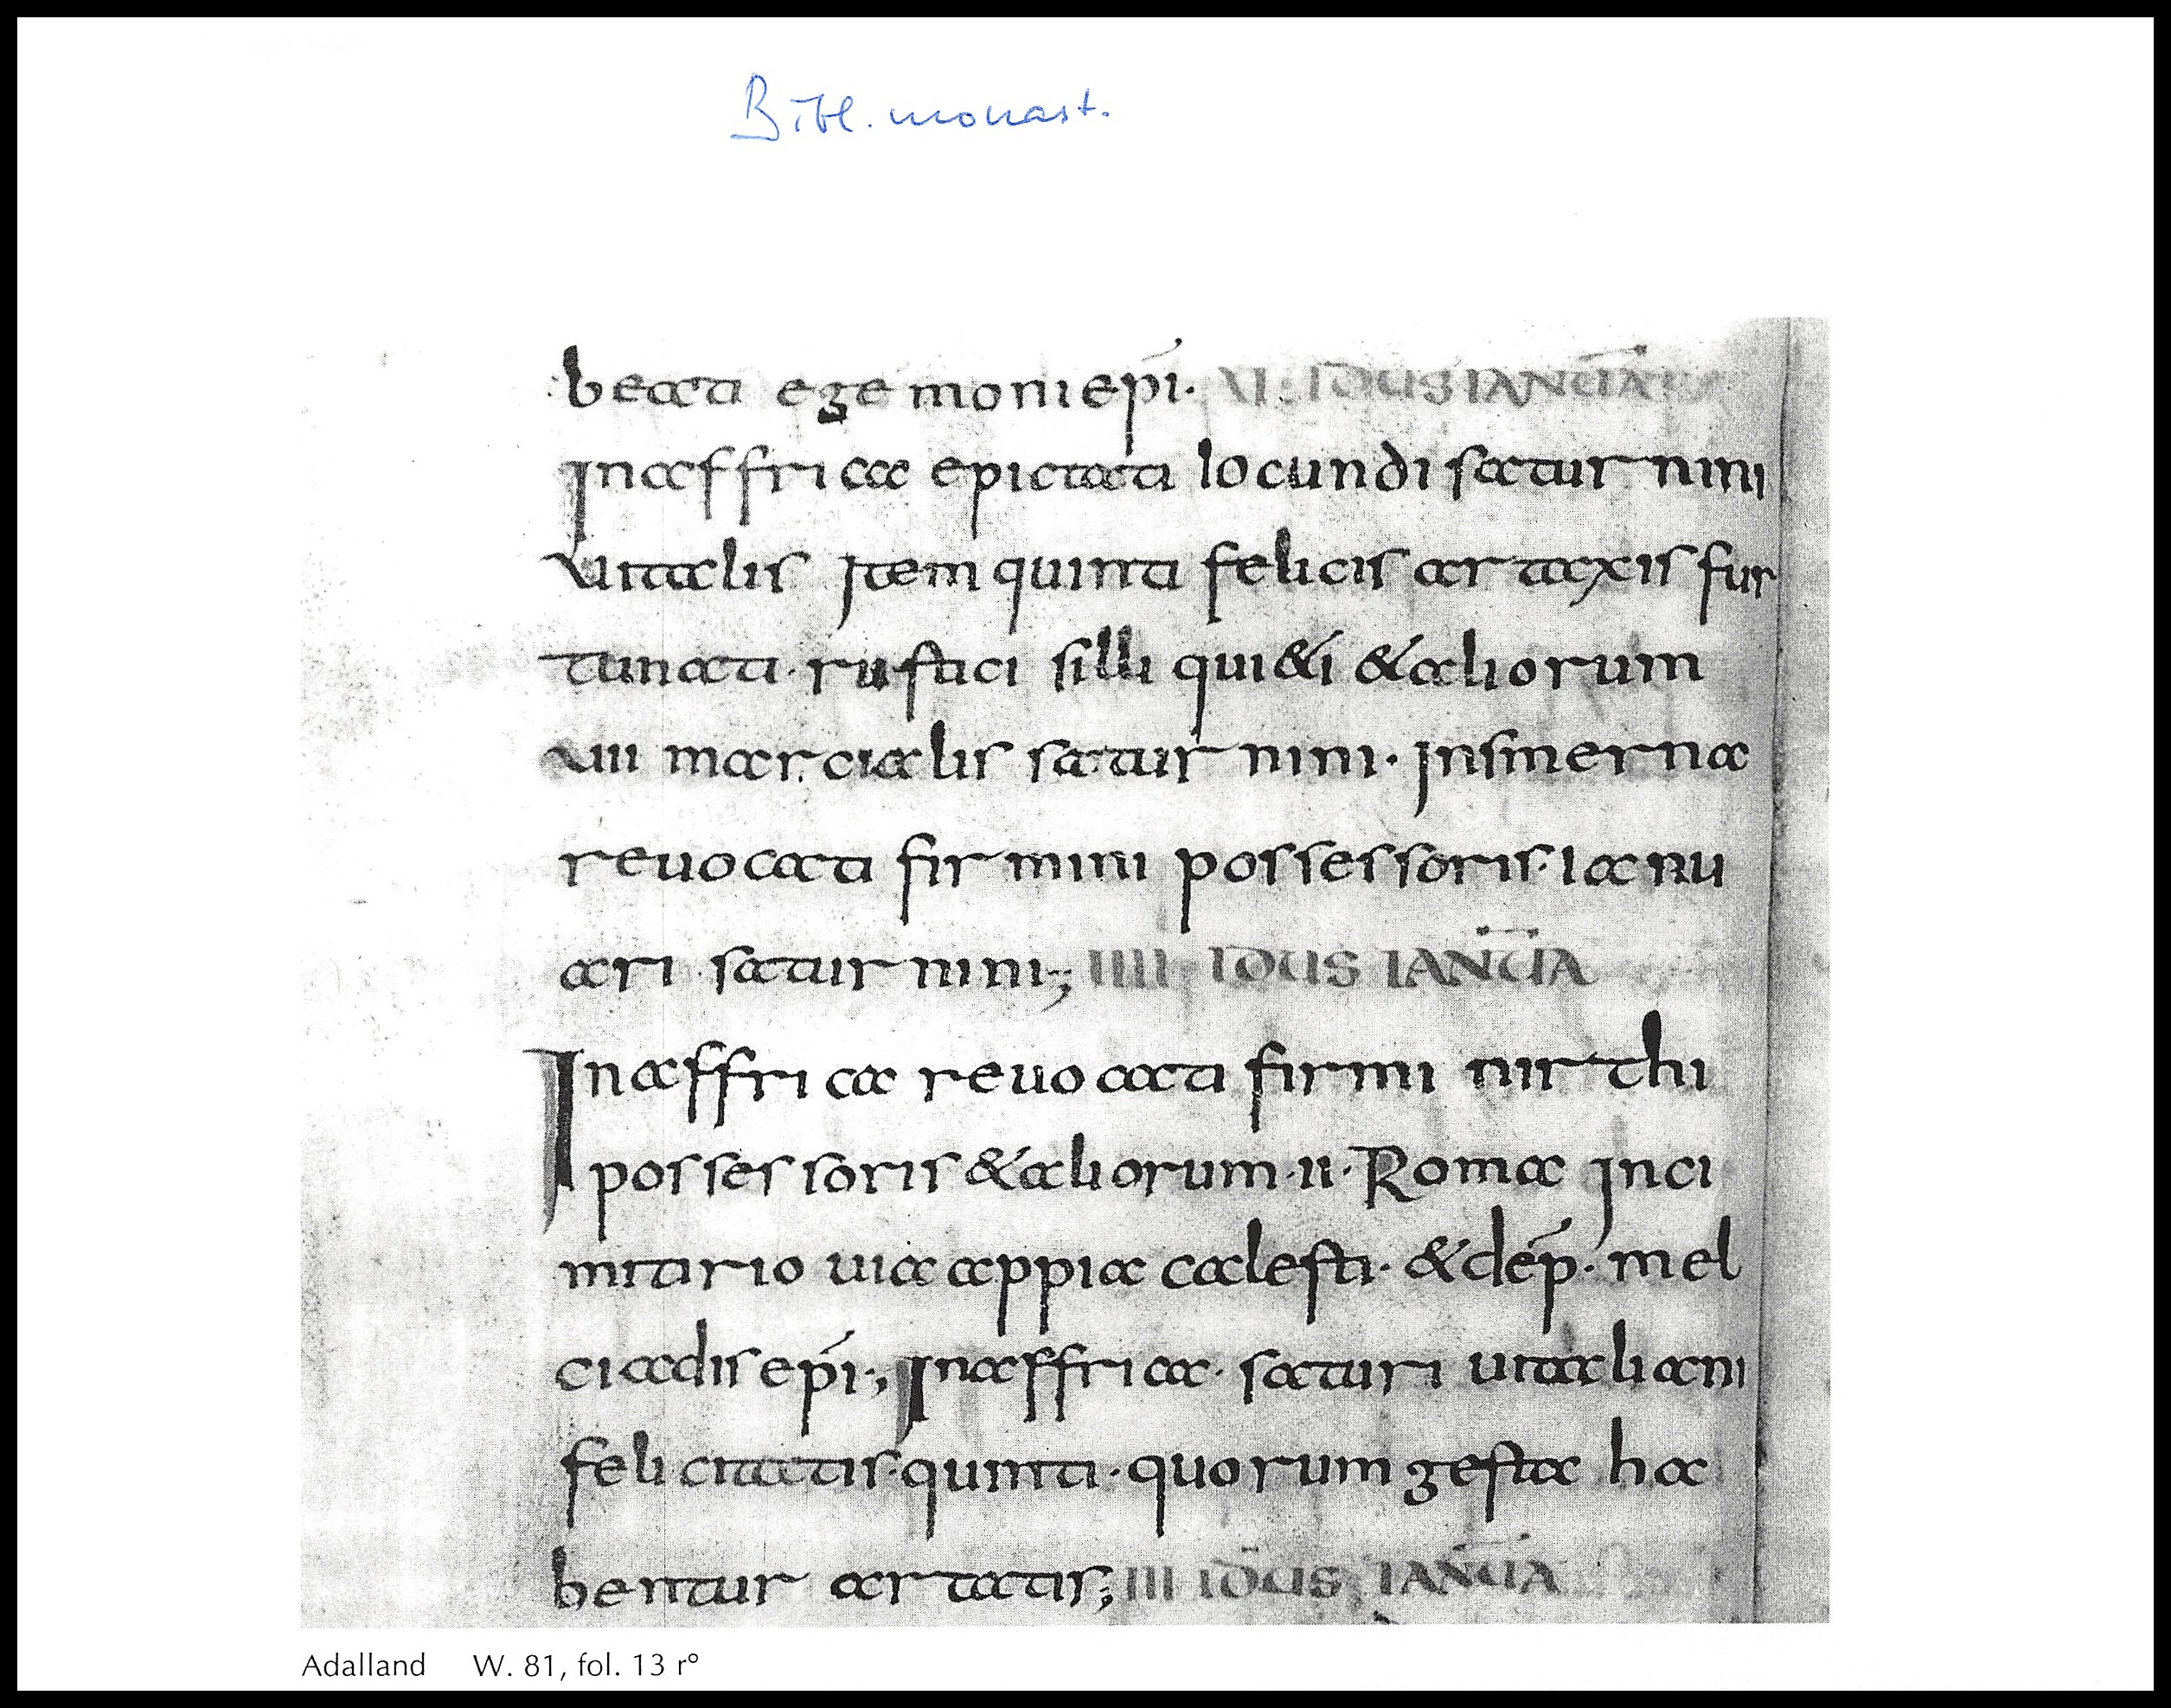 Bibl. monast.
beati egemoni ep̄i. VI. IDUS IANUA
In affrica epictati locundi saturnini
vitalis Item quinti felicis artaxis fur
tunati. rustici silli qui&i &aliorum
viii marcialis saturnini. In smerna
revocati firmini possessoris. Ianu
ari saturnini; IIII IDUS IANUA
In affrica revocati firmi nirthi
possessoris &aliorum. ii. Romae Inci
mitirio uia appia calesti. &dep̄. mel
ciadis ep̄i; In affrica. saturi uitaliani
felicitatis. quinti. quorum gesta ha
bentur artatis; III IDUS IANUA
Adalland W. 81, fol. 13 r°